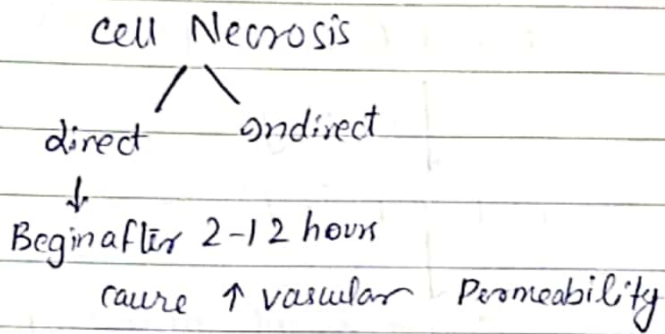 Cell Necrosis
direct Indirect
↓
Begin after 2-12 hours
cause ↑ vascular Permeability